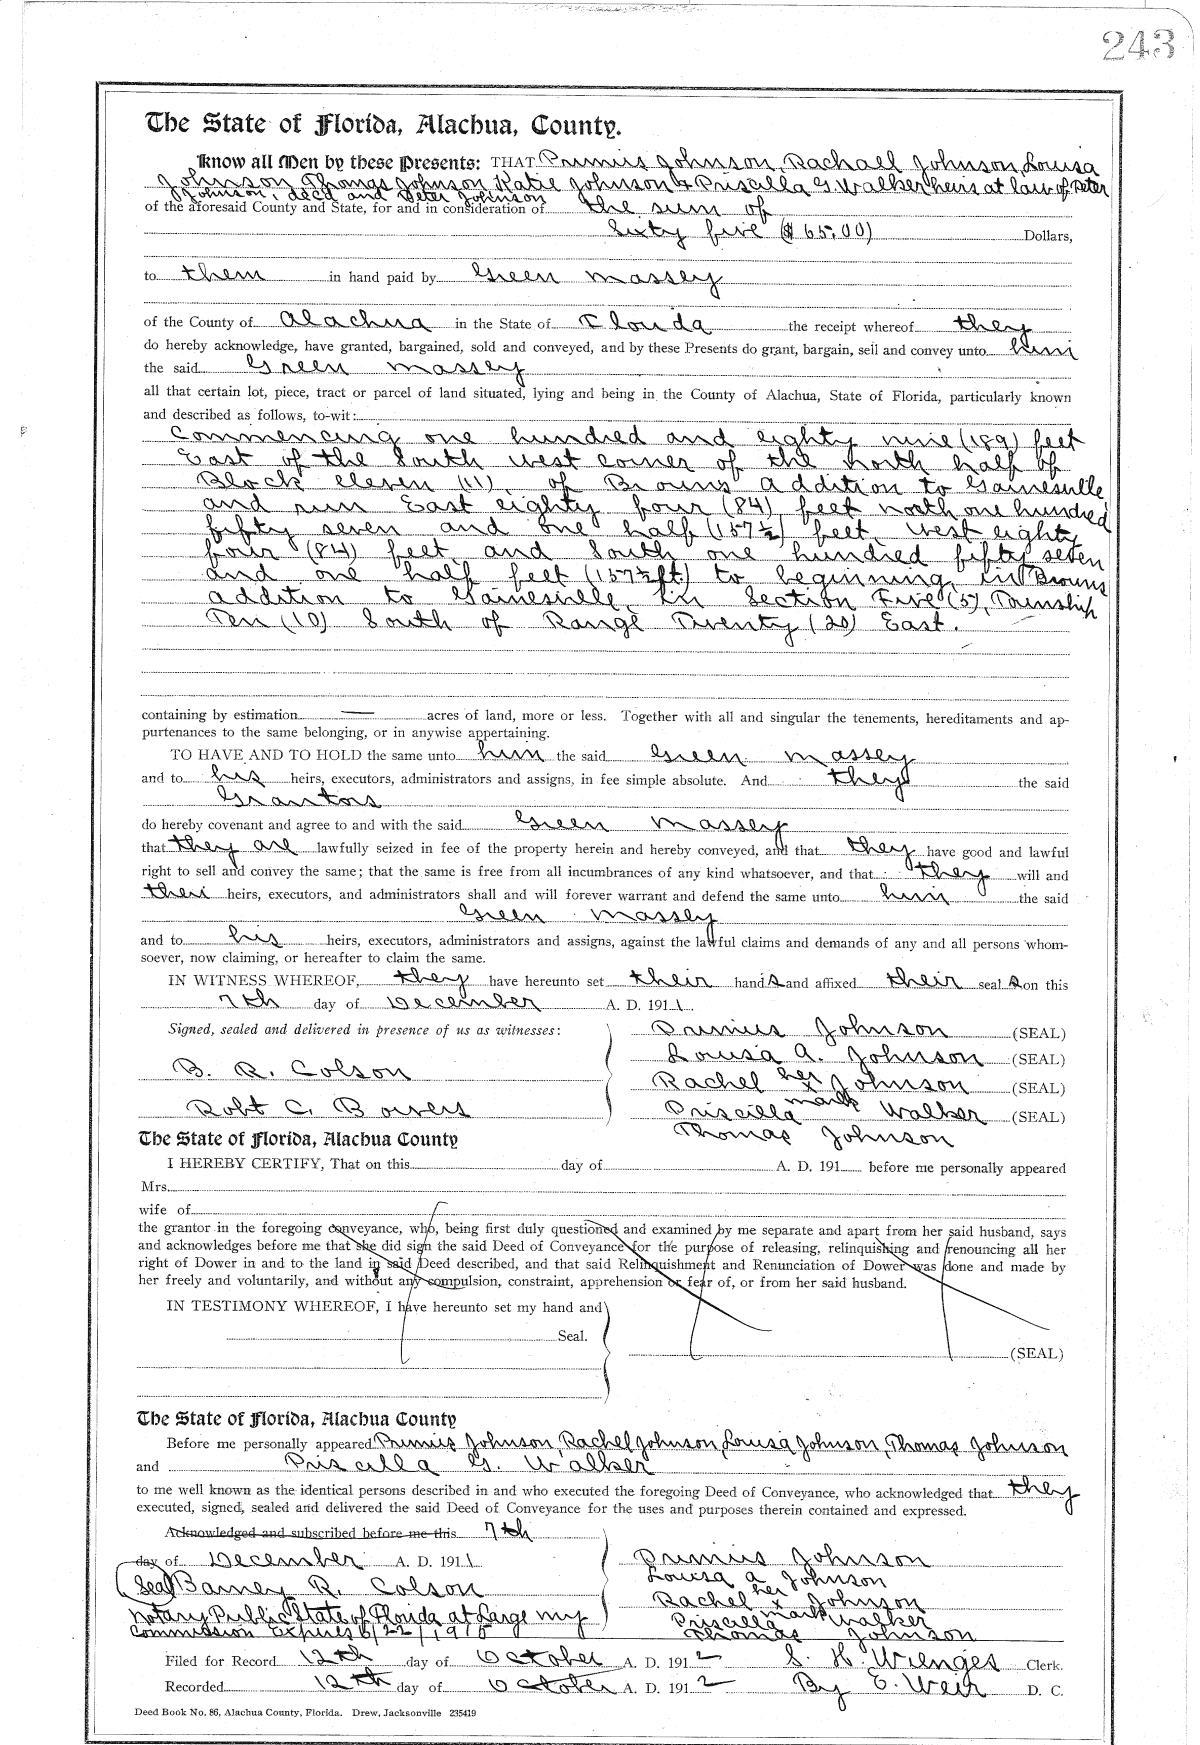 243
The State of Florida, Alachua, County.
Know all Men by these Presents: THAT Primus Johnson, Rachael Johnson, Lousa
Johnson, Thomas Johnson, Katie Johnson & Priscilla G. Walker heirs at law of Peter
Johnson, decd and Peter Johnson
of the aforesaid County and State, for and in consideration of the sum of
Sixty five ($65.00) Dollars,
to them in hand paid by Green Massey
of the County of Alachua in the State of Florida the receipt whereof they
do hereby acknowledge, have granted, bargained, sold and conveyed, and by these Presents do grant, bargain, sell and convey unto him
the said Green Massey
all that certain lot, piece, tract or parcel of land situated, lying and being in the County of Alachua, State of Florida, particularly known
and described as follows, to-wit:
Commencing one hundred and eighty nine (189) feet
East of the South west corner of the north half of
Block eleven (11), of Browns addition to Gainesville,
and run East eighty four (84) feet north one hundred
fifty seven and one half (157½) feet, west eighty
four (84) feet and South one hundred fifty seven
and one half feet (157½ft) to beginning, in Browns
addition to Gainesville, in Section Five (5), Township
Ten (10) South of Range Twenty (20) East.
containing by estimation — acres of land, more or less. Together with all and singular the tenements, hereditaments and ap-
purtenances to the same belonging, or in anywise appertaining.
TO HAVE AND TO HOLD the same unto him the said Green Massey
and to his heirs, executors, administrators and assigns, in fee simple absolute. And they the said
Grantors
do hereby covenant and agree to and with the said Green Massey
that they are lawfully seized in fee of the property herein and hereby conveyed, and that they have good and lawful
right to sell and convey the same; that the same is free from all incumbrances of any kind whatsoever, and that they will and
their heirs, executors, and administrators shall and will forever warrant and defend the same unto him the said
Green Massey
and to his heirs, executors, administrators and assigns, against the lawful claims and demands of any and all persons whom-
soever, now claiming, or hereafter to claim the same.
IN WITNESS WHEREOF, they have hereunto set their hands and affixed their seals on this
7th day of December A. D. 1911.
Signed, sealed and delivered in presence of us as witnesses: Primus Johnson (SEAL)
Lousa A. Johnson (SEAL)
B. R. Colson Rachel her x mark Johnson (SEAL)
Robt C. Bowers Priscilla Walker (SEAL)
Thomas Johnson
The State of Florida, Alachua County
I HEREBY CERTIFY, That on this day of A. D. 191 before me personally appeared
Mrs.
wife of
the grantor in the foregoing conveyance, who, being first duly questioned and examined by me separate and apart from her said husband, says
and acknowledges before me that she did sign the said Deed of Conveyance for the purpose of releasing, relinquishing and renouncing all her
right of Dower in and to the land in said Deed described, and that said Relinquishment and Renunciation of Dower was done and made by
her freely and voluntarily, and without any compulsion, constraint, apprehension or fear of, or from her said husband.
IN TESTIMONY WHEREOF, I have hereunto set my hand and
Seal.
(SEAL)
The State of Florida, Alachua County
Before me personally appeared Primus Johnson, Rachel Johnson, Lousa Johnson, Thomas Johnson
and Priscilla G. Walker
to me well known as the identical persons described in and who executed the foregoing Deed of Conveyance, who acknowledged that they
executed, signed, sealed and delivered the said Deed of Conveyance for the uses and purposes therein contained and expressed.
Acknowledged and subscribed before me this 7th
day of December A. D. 1911 Primus Johnson
(Seal) Barney R. Colson Lousa A Johnson
Rachel her x mark Johnson
Notary Public State of Florida at Large my Priscilla Walker
Commission Expires 6/22/1915 Thomas Johnson
Filed for Record 12th day of October A. D. 1912 S. H. Wienges Clerk.
Recorded 12th day of October A. D. 1912 By E. Weir D. C.
Deed Book No. 86, Alachua County, Florida. Drew, Jacksonville 235419